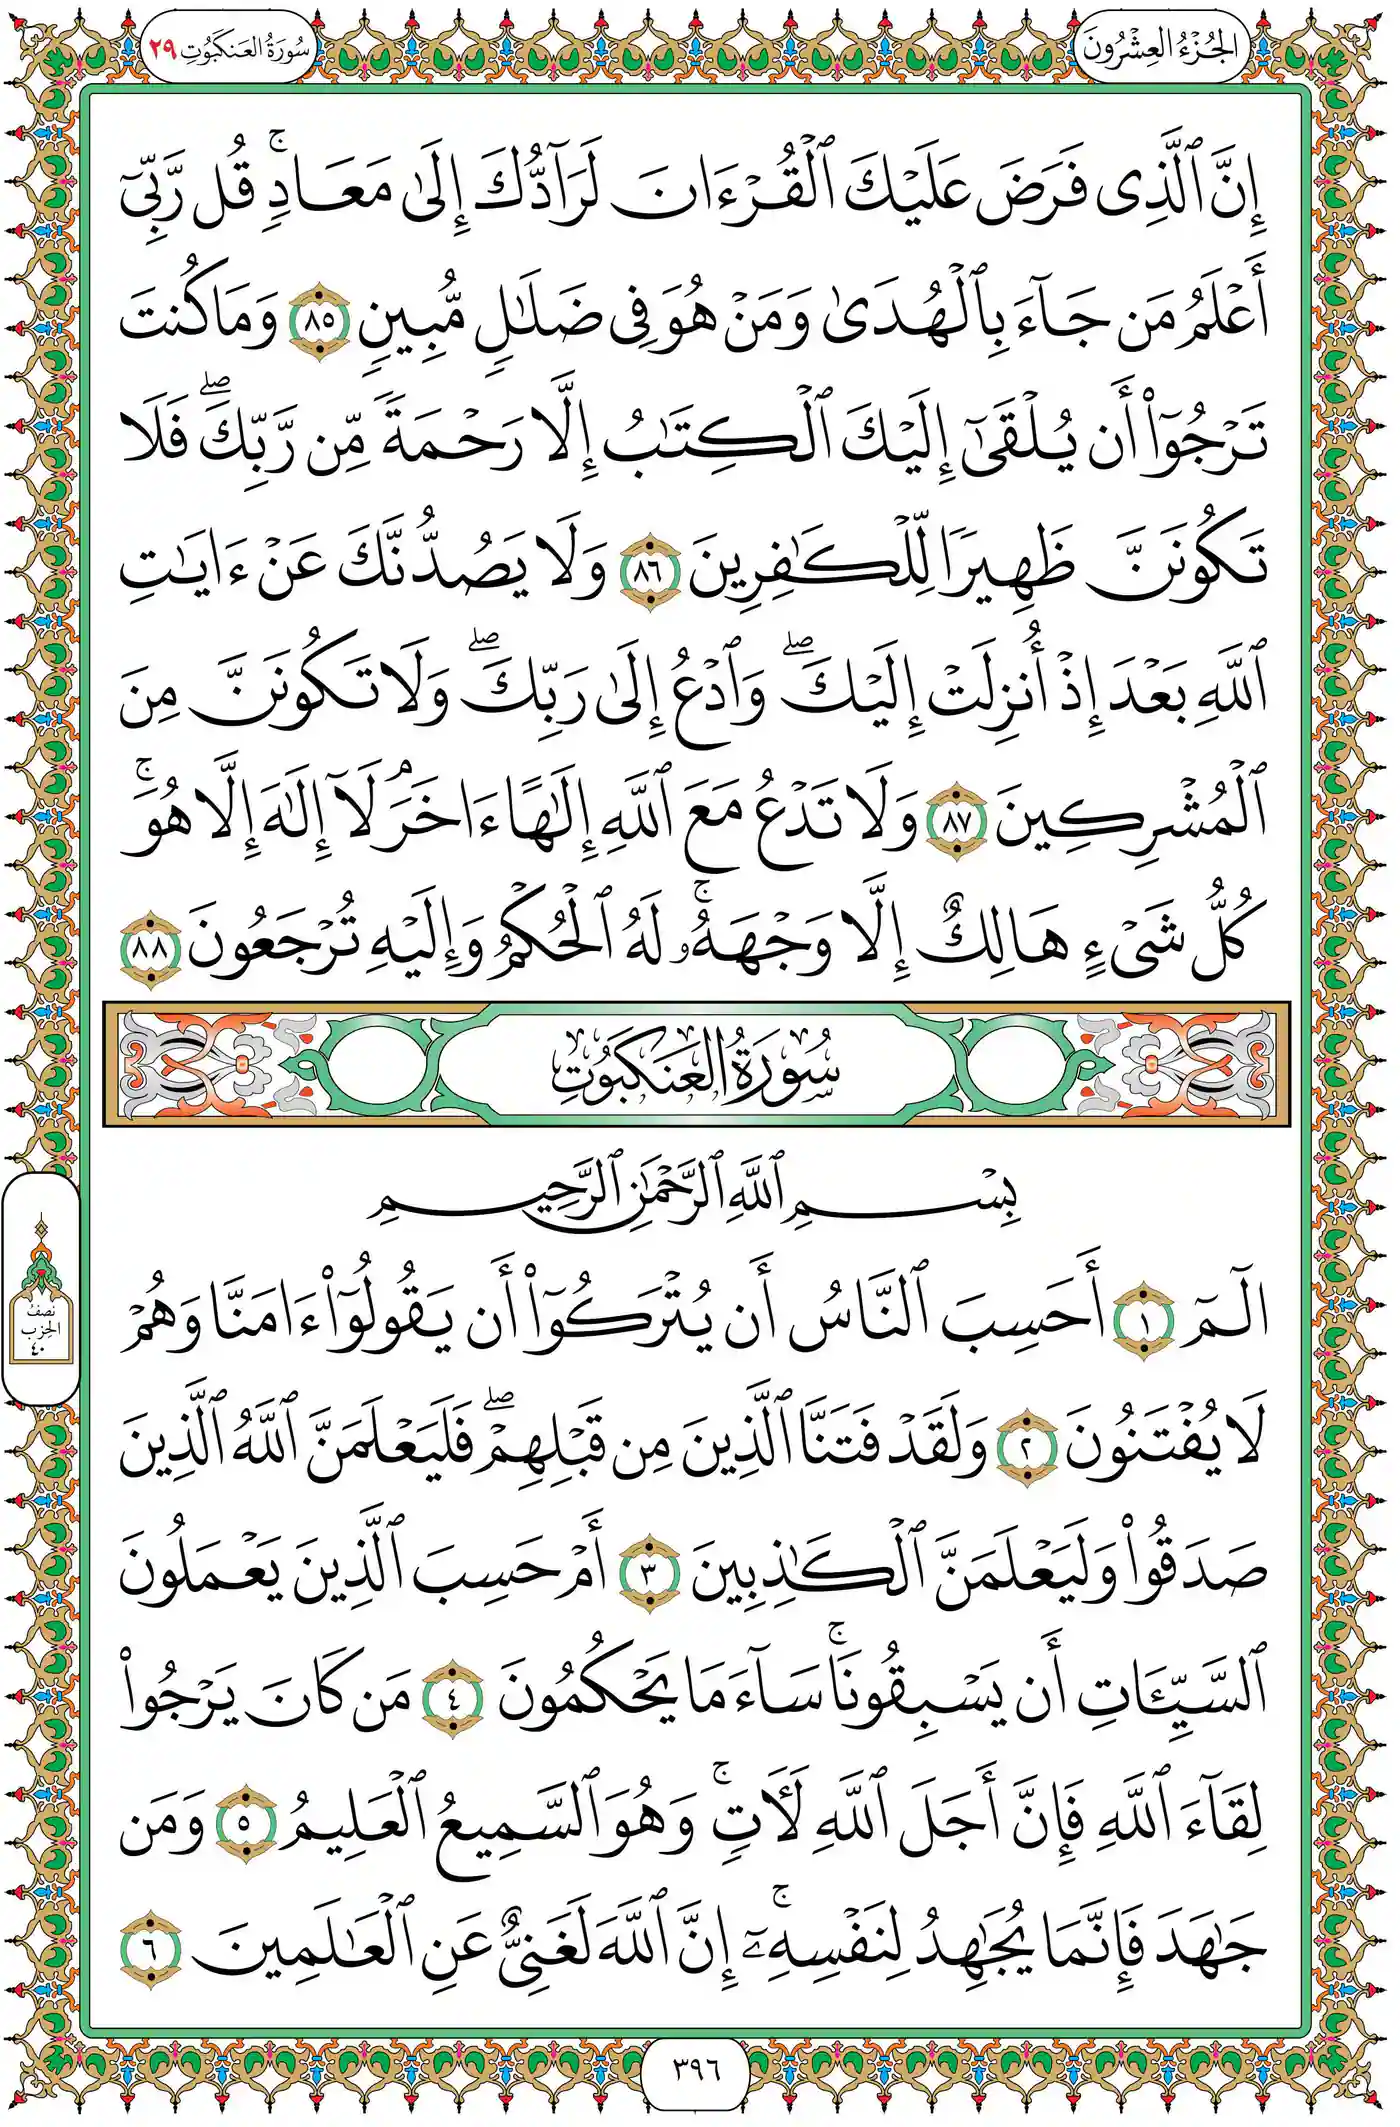 الجُزْءُ العِشْرُونَ
سُورَةُ العَنكَبُوتِ ٢٩
إِنَّ ٱلَّذِى فَرَضَ عَلَيْكَ ٱلْقُرْءَانَ لَرَآدُّكَ إِلَىٰ مَعَادٍۢ ۚ قُل رَّبِّىٓ
أَعْلَمُ مَن جَآءَ بِٱلْهُدَىٰ وَمَنْ هُوَ فِى ضَلَـٰلٍۢ مُّبِينٍۢ ٨٥ وَمَا كُنتَ
تَرْجُوٓا۟ أَن يُلْقَىٰٓ إِلَيْكَ ٱلْكِتَـٰبُ إِلَّا رَحْمَةًۭ مِّن رَّبِّكَ ۖ فَلَا
تَكُونَنَّ ظَهِيرًۭا لِّلْكَـٰفِرِينَ ٨٦ وَلَا يَصُدُّنَّكَ عَنْ ءَايَـٰتِ
ٱللَّهِ بَعْدَ إِذْ أُنزِلَتْ إِلَيْكَ ۖ وَٱدْعُ إِلَىٰ رَبِّكَ ۖ وَلَا تَكُونَنَّ مِنَ
ٱلْمُشْرِكِينَ ٨٧ وَلَا تَدْعُ مَعَ ٱللَّهِ إِلَـٰهًا ءَاخَرَ ۘ لَآ إِلَـٰهَ إِلَّا هُوَ ۚ
كُلُّ شَىْءٍ هَالِكٌ إِلَّا وَجْهَهُۥ ۚ لَهُ ٱلْحُكْمُ وَإِلَيْهِ تُرْجَعُونَ ٨٨
سُورَةُ العَنكَبُوتِ
بِسْمِ ٱللَّهِ ٱلرَّحْمَـٰنِ ٱلرَّحِيمِ
الٓمٓ ١ أَحَسِبَ ٱلنَّاسُ أَن يُتْرَكُوٓا۟ أَن يَقُولُوٓا۟ ءَامَنَّا وَهُمْ
لَا يُفْتَنُونَ ٢ وَلَقَدْ فَتَنَّا ٱلَّذِينَ مِن قَبْلِهِمْ ۖ فَلَيَعْلَمَنَّ ٱللَّهُ ٱلَّذِينَ
صَدَقُوا۟ وَلَيَعْلَمَنَّ ٱلْكَـٰذِبِينَ ٣ أَمْ حَسِبَ ٱلَّذِينَ يَعْمَلُونَ
ٱلسَّيِّـَٔاتِ أَن يَسْبِقُونَا ۚ سَآءَ مَا يَحْكُمُونَ ٤ مَن كَانَ يَرْجُوا۟
لِقَآءَ ٱللَّهِ فَإِنَّ أَجَلَ ٱللَّهِ لَـَٔاتٍۢ ۚ وَهُوَ ٱلسَّمِيعُ ٱلْعَلِيمُ ٥ وَمَن
جَـٰهَدَ فَإِنَّمَا يُجَـٰهِدُ لِنَفْسِهِۦٓ ۚ إِنَّ ٱللَّهَ لَغَنِىٌّ عَنِ ٱلْعَـٰلَمِينَ ٦
نِصْفُ
الحِزْب
٤٠
٣٩٦